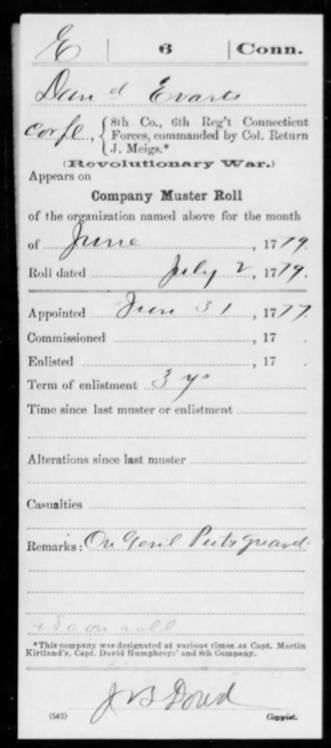 E | 6 | Conn.
Dan d Evarts
Corpl, { 8th Co., 6th Reg't Connecticut
Forces, commanded by Col. Return
J. Meigs.*
(Revolutionary War.)
Appears on
Company Muster Roll
of the organization named above for the month
of June, 1779.
Roll dated July 2, 1779.
Appointed 31, 1777.
Commissioned , 17 .
Enlisted , 17 .
Term of enlistment 3 ys
Time since last muster or enlistment
Alterations since last muster
Casualties
Remarks: On Genl guard.
+ So on roll
*This company was designated at various times as Capt. Martin
Kirtland's, Capt. David Humphreys' and 8th Company.
J B Dowd
(543) Copyist.